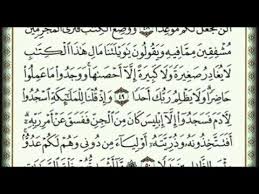 أَلَّن نَّجْعَلَ لَكُم مَّوْعِدًا ٤٨ وَوُضِعَ ٱلْكِتَٰبُ فَتَرَى ٱلْمُجْرِمِينَ
مُشْفِقِينَ مِمَّا فِيهِ وَيَقُولُونَ يَٰوَيْلَتَنَا مَالِ هَٰذَا ٱلْكِتَٰبِ
لَا يُغَادِرُ صَغِيرَةً وَلَا كَبِيرَةً إِلَّآ أَحْصَىٰهَا وَوَجَدُوا۟ مَا عَمِلُوا۟
حَاضِرًا وَلَا يَظْلِمُ رَبُّكَ أَحَدًا ٤٩ وَإِذْ قُلْنَا لِلْمَلَٰٓئِكَةِ ٱسْجُدُوا۟
لِءَادَمَ فَسَجَدُوٓا۟ إِلَّآ إِبْلِيسَ كَانَ مِنَ ٱلْجِنِّ فَفَسَقَ عَنْ أَمْرِ رَبِّهِۦٓ
أَفَتَتَّخِذُونَهُۥ وَذُرِّيَّتَهُۥٓ أَوْلِيَآءَ مِن دُونِى وَهُمْ لَكُمْ عَدُوٌّۢ